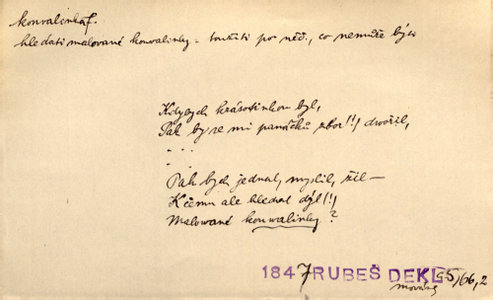 konvalinka f.
hledati malované konvalinky = toužiti po něč., co nemůže býti
Kdybych krasotinkou byl,
Pak by se mi panáčků sbor(!) dvořil,
. . .
. . .
Pak bych jednal, myslil, žil —
K čemu ale hledat dýl(!)
Malované konvalinky?
1847 RUBEŠ DEKL
55/66,2